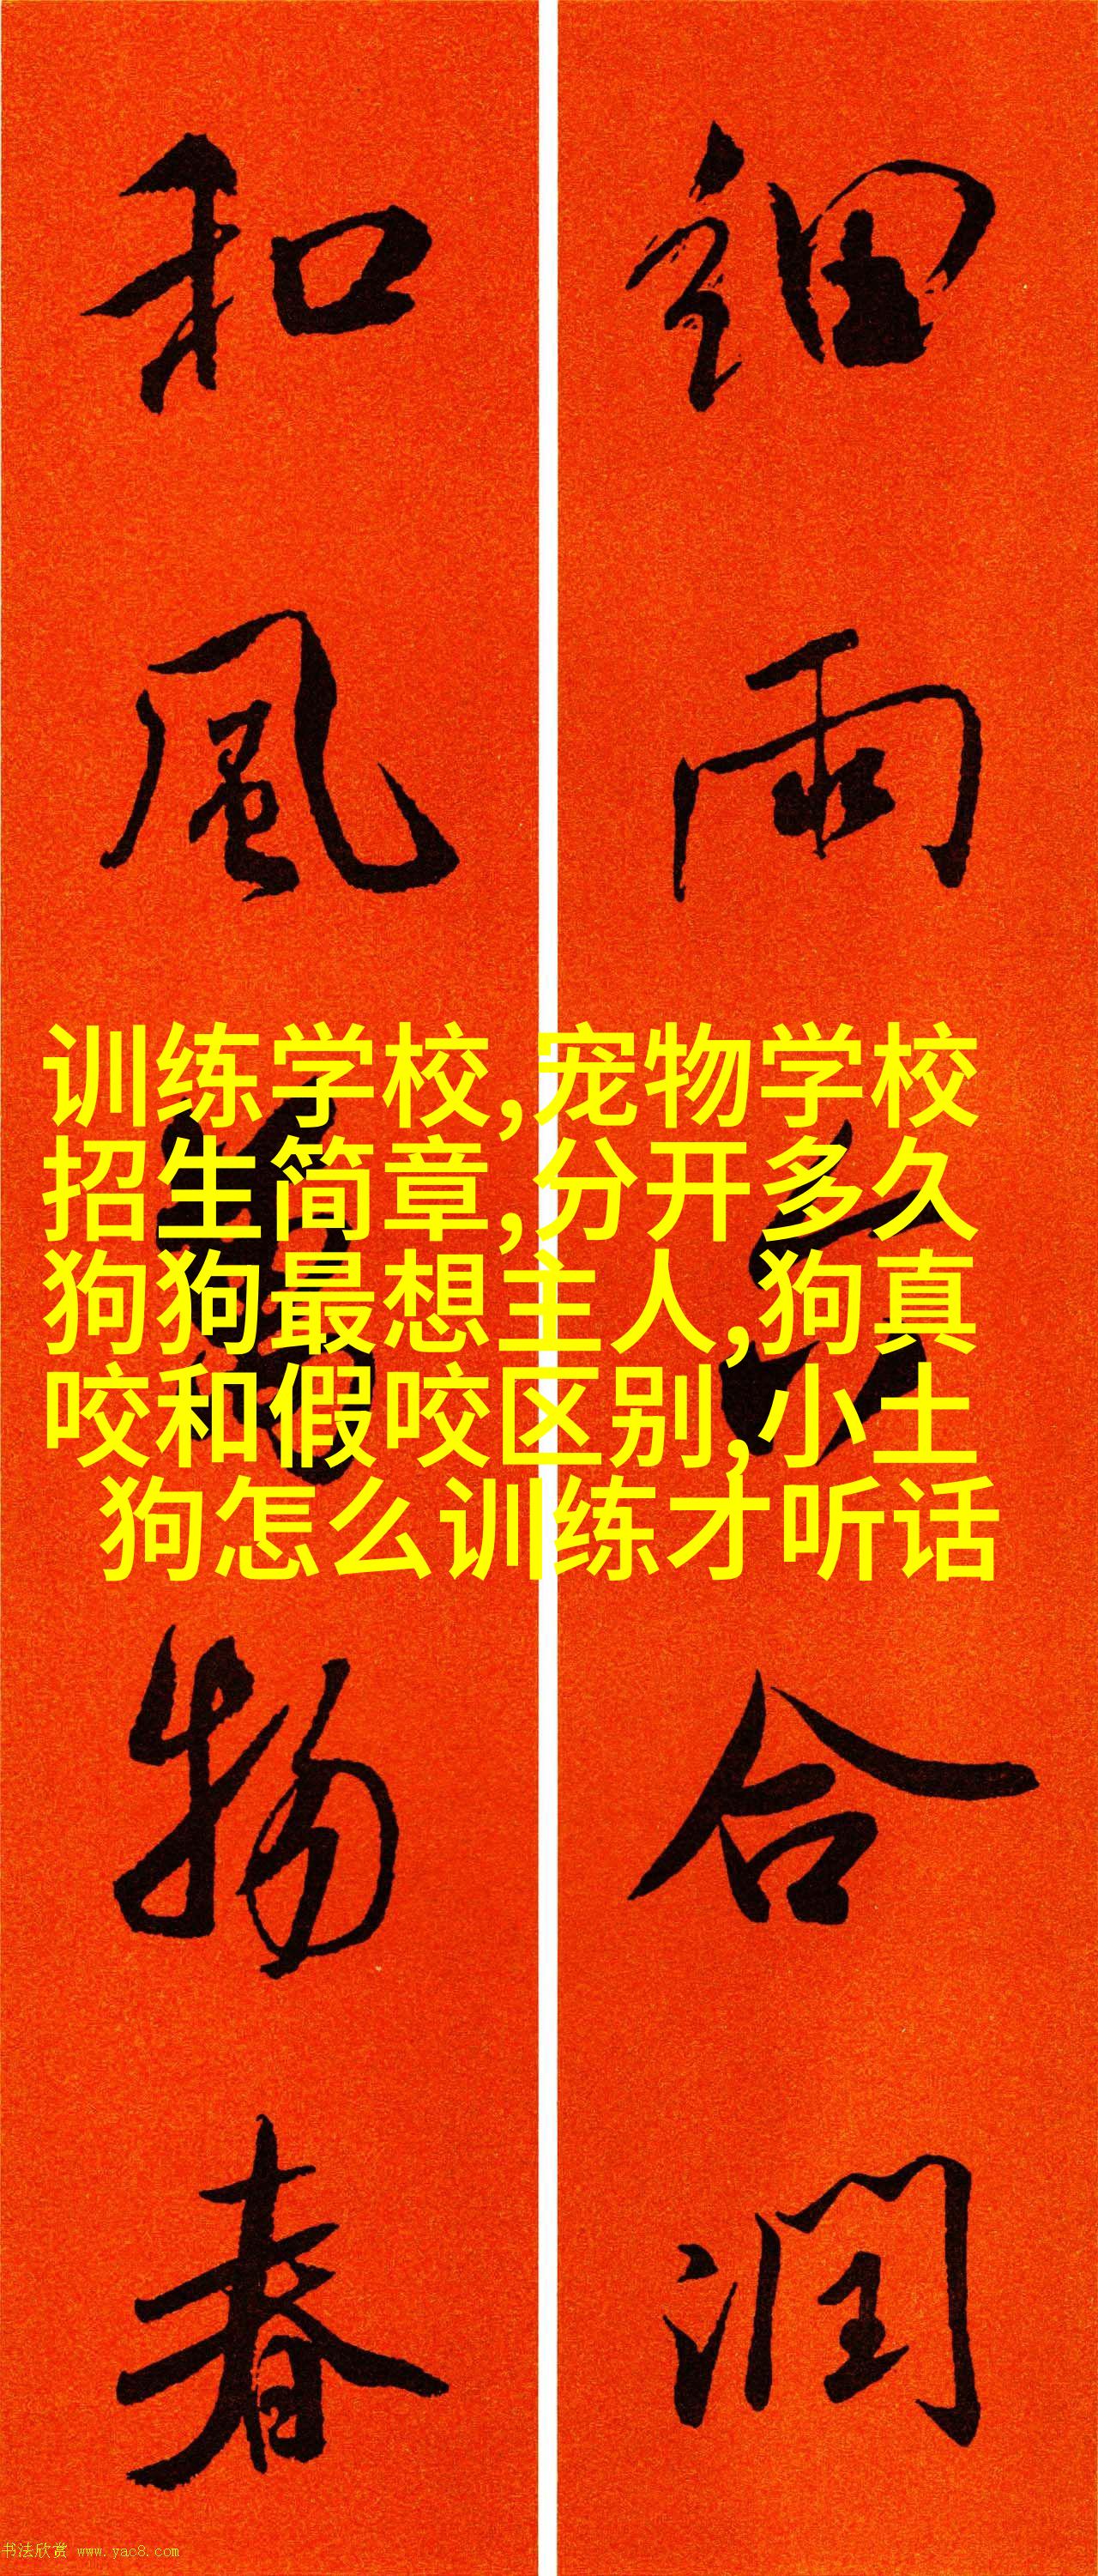 細雨六合潤
和風萬物春
训练学校,宠物学校
招生简章,分开多久
狗狗最想主人,狗真
咬和假咬区别,小土
狗怎么训练才听话
书法欣赏 www.yac8.com